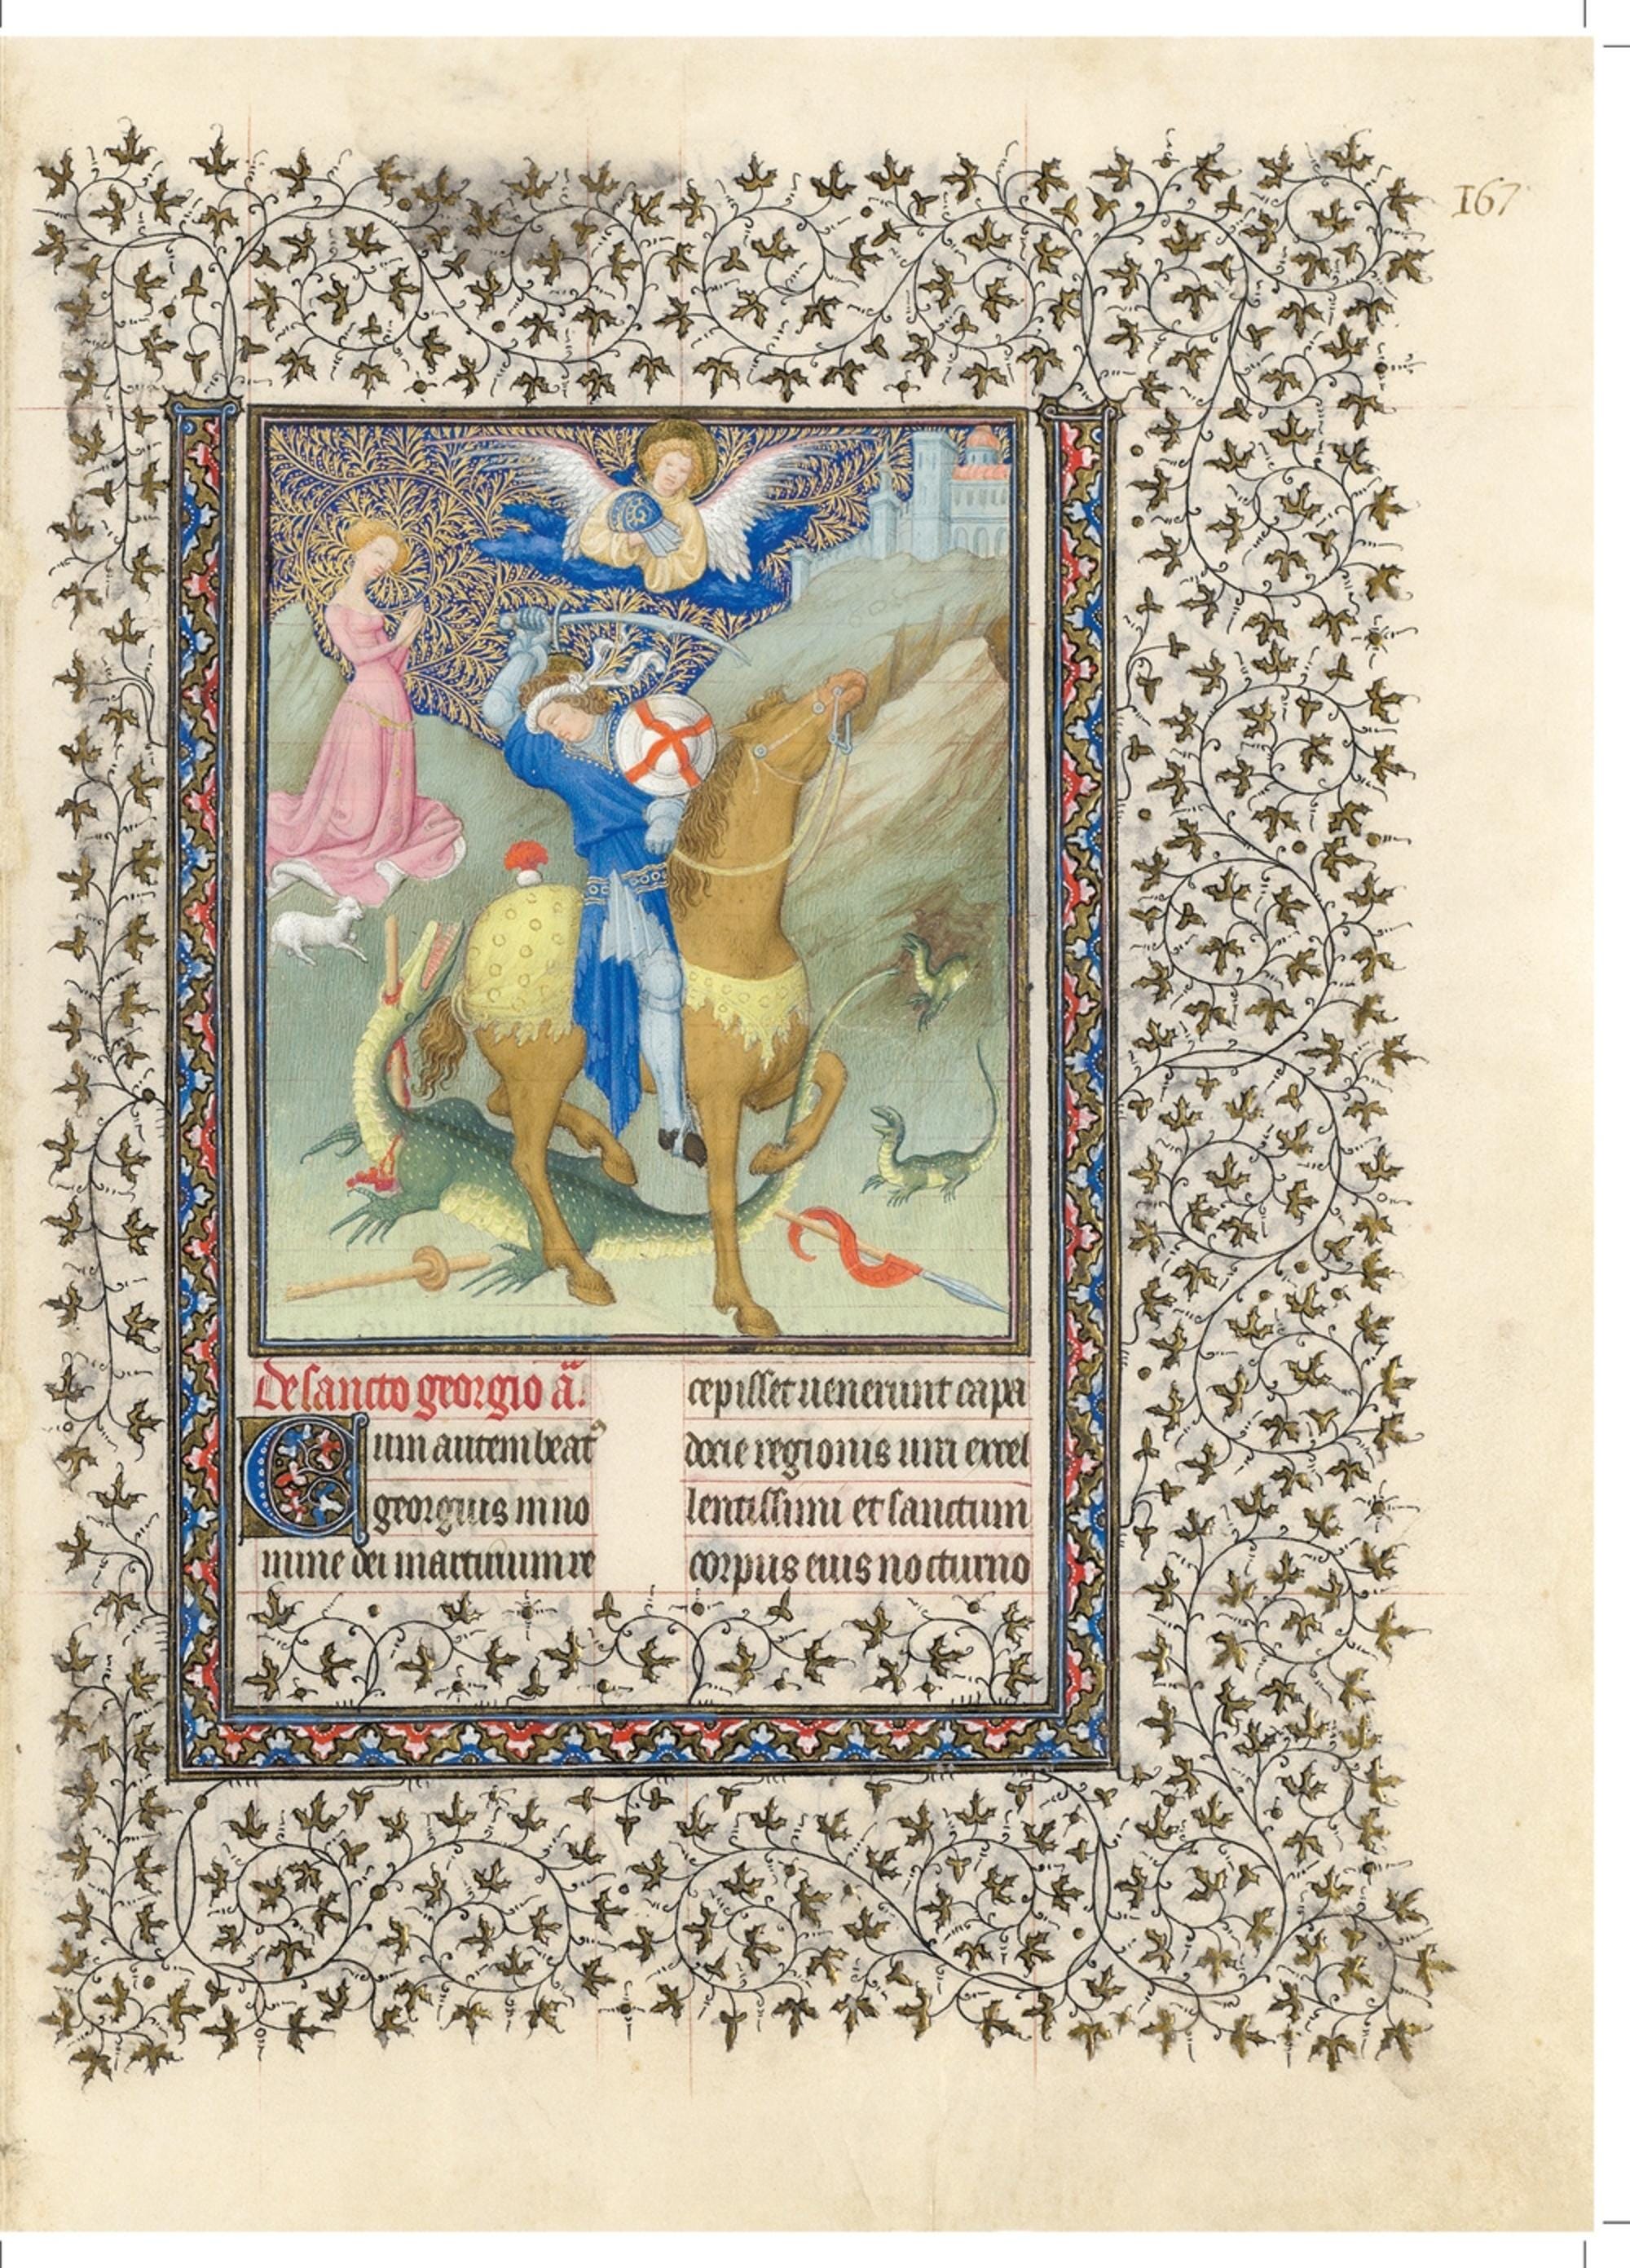 167
De sancto georgio a̅.
Cum autem beatꝰ
georgius in no
mine dei martirium re
cepisset uenerunt capa
docie regionis uiri excel
lentissimi et sanctum
corpus eius nocturno